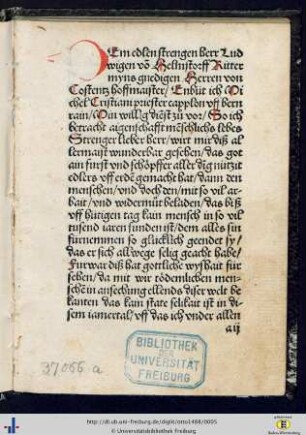 DEm edlen strengen herr Lud
wigen võ Helmstorff Ritter
myns gnedigen Herren von
Costentz hoffmaister/ Enbüt ich Mi
chel Cristiani priester capplon vff bern
rain/ Min willig diēst zů vor/ So ich
betracht aigenschafft mēschlichs lebēs
Strenger lieber herr/ wirt mir diß al
lermaist wunderbar gesehen/ das got
ain fürst vnd schöpffer aller ding nützit
edlers vff erdē gemacht hat/ dann den
menschen/ vnd doch den/ mit so vil ar
bait/ vnd widermůt beladen/ das biß
vff hütigen tag kain mensch in so vil
tusend iaren funden ist/ dem alles sin
fürnemmen so glücklich geendet sy/
das er sich allwege selig geacht habe/
Fürwar diß hat gottliche wyßhait für
sehen/ da mit wir tödemlichen men
sche in ansechung ellends diser welt be
kanten das kain state selikait ist in di
sem iamertal/ vff das ich vnder allen
aij
37066 a
BIBLIOTHEK
DER
UNIVERSITÄT
FREIBURG
http://dl.ub.uni-freiburg.de/diglit/otto1488/0005
© Universitätsbibliothek Freiburg